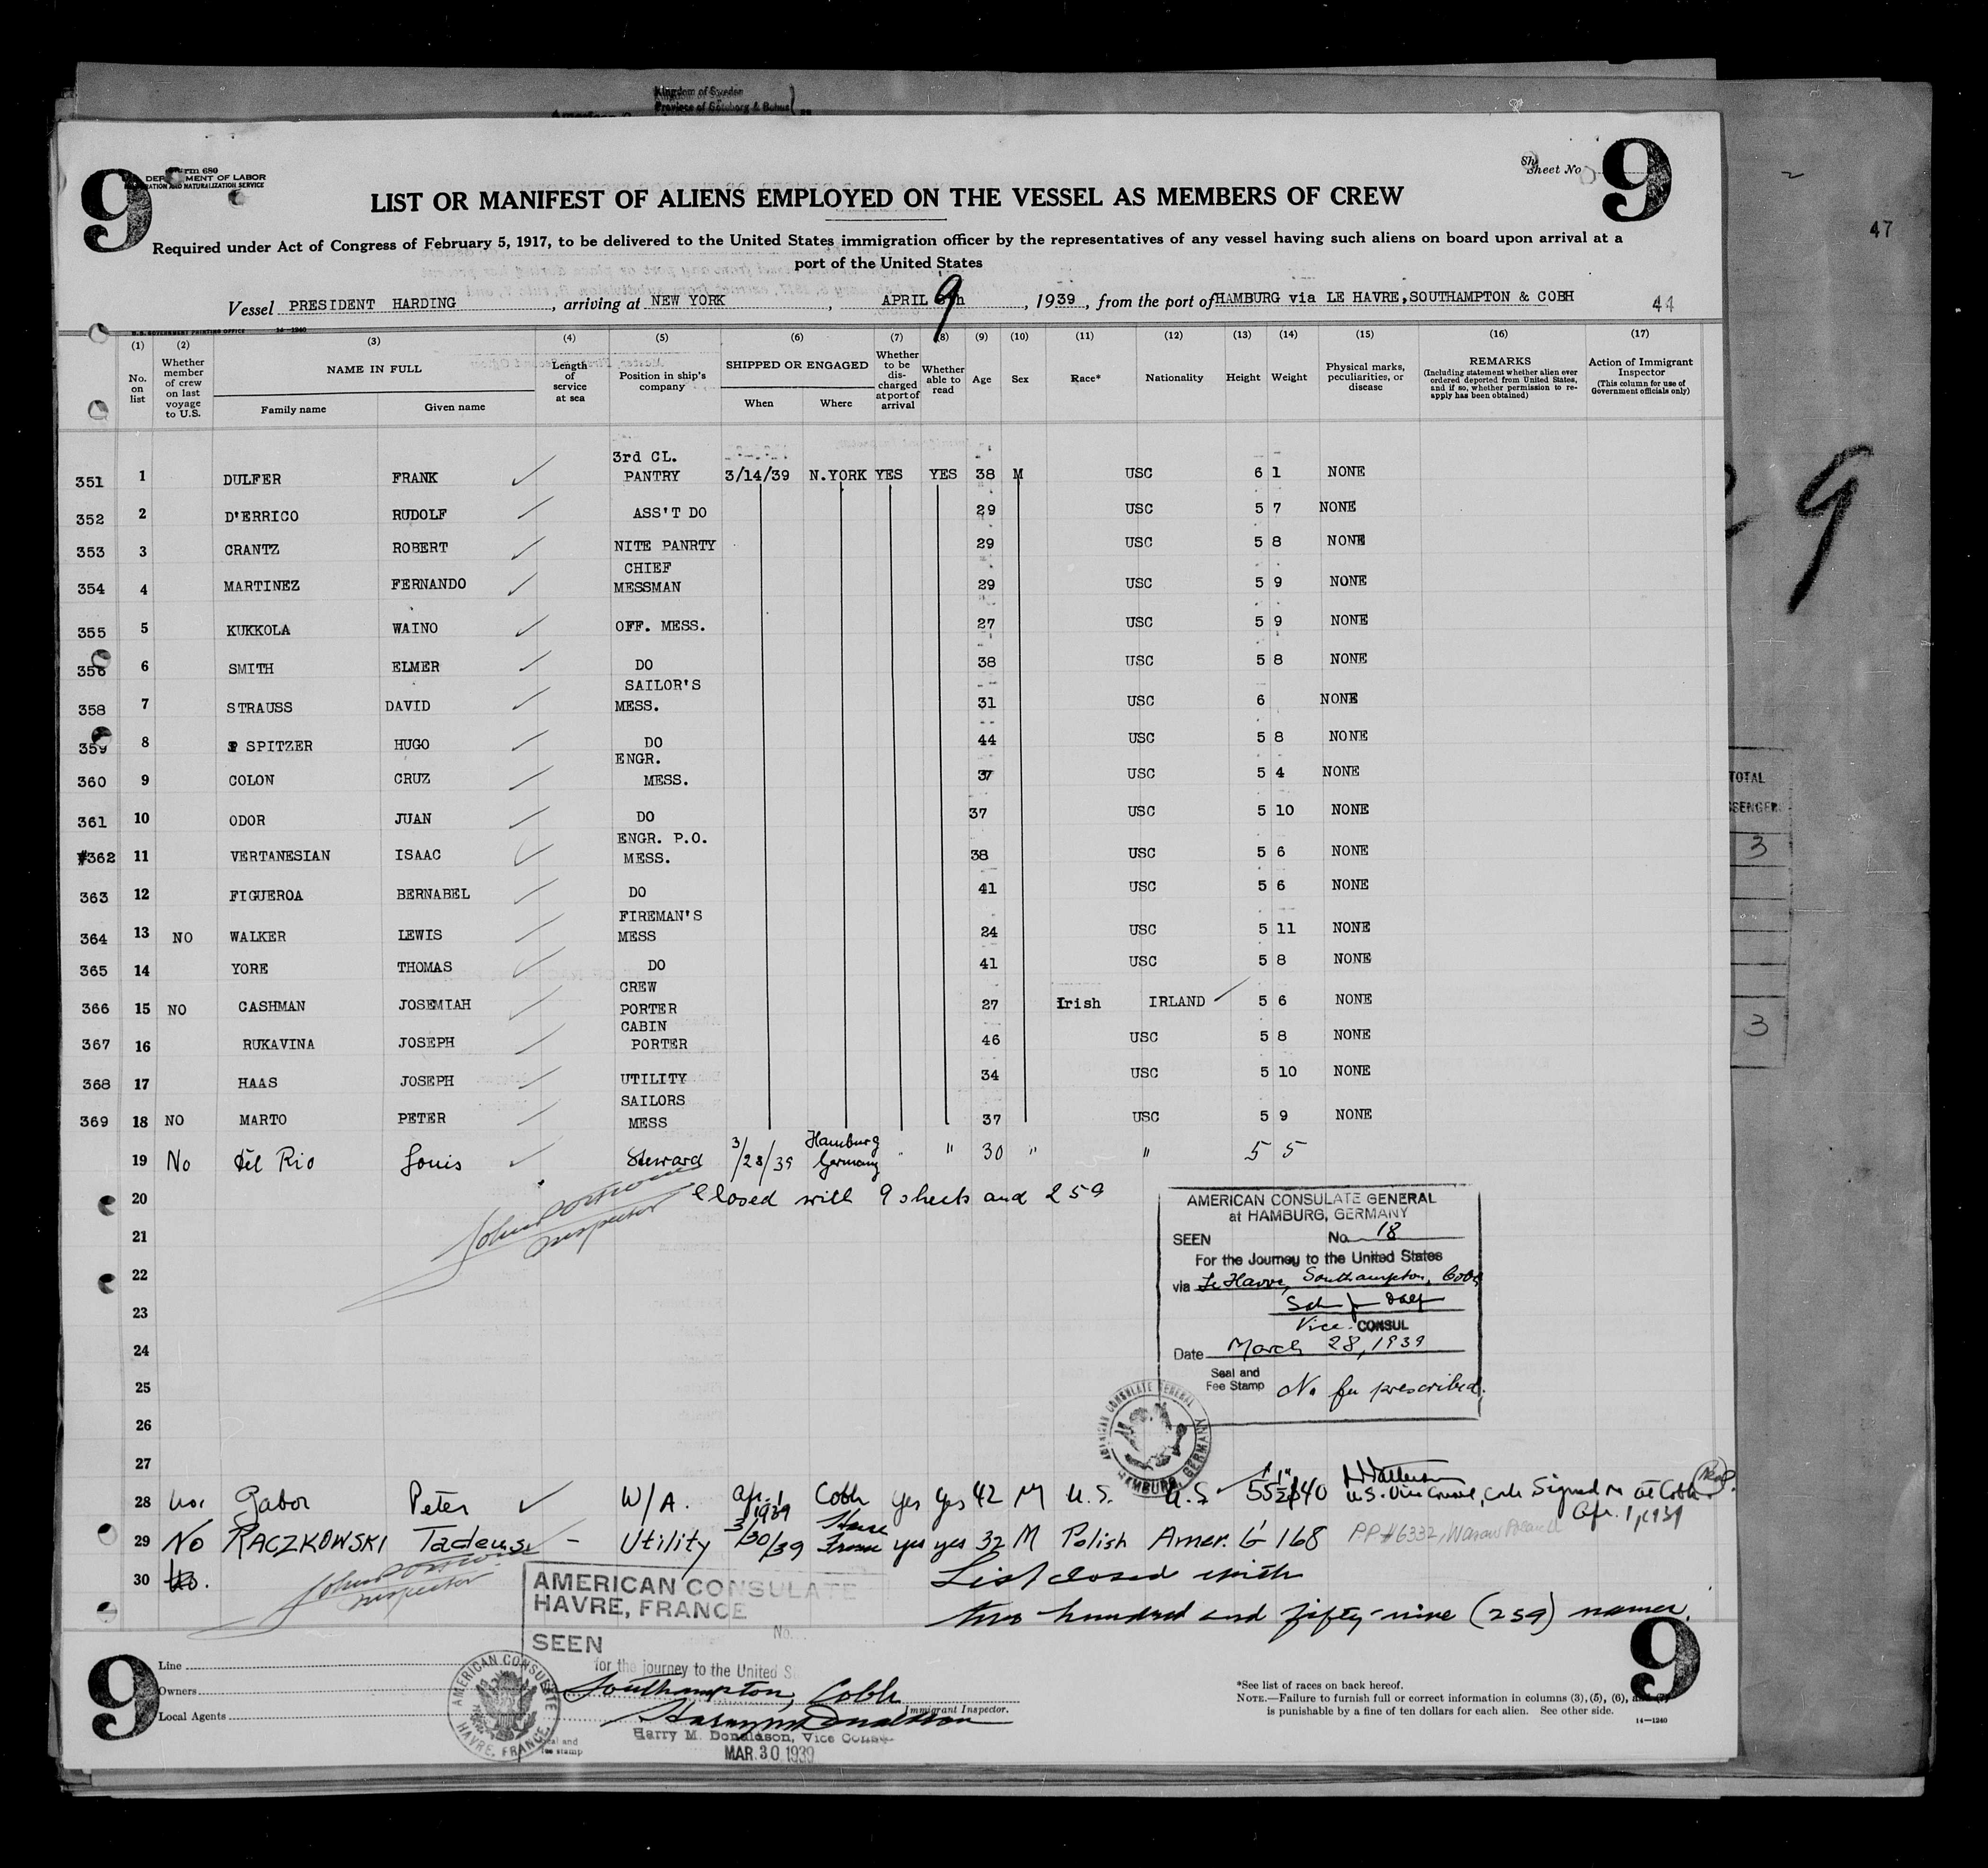 Kingdom of Sweden
Province of Göteborg & Bohus
9
Form 680
DEPARTMENT OF LABOR
IMMIGRATION AND NATURALIZATION SERVICE
Sheet No
9
47
LIST OR MANIFEST OF ALIENS EMPLOYED ON THE VESSEL AS MEMBERS OF CREW
Required under Act of Congress of February 5, 1917, to be delivered to the United States immigration officer by the representatives of any vessel having such aliens on board upon arrival at a
port of the United States
Vessel PRESIDENT HARDING, arriving at NEW YORK, APRIL 9, 1939, from the port of HAMBURG via LE HAVRE,SOUTHAMPTON & COBH 44
U.S. GOVERNMENT PRINTING OFFICE 14—1240
(1) (2) (3) (4) (5) (6) (7) (8) (9) (10) (11) (12) (13) (14) (15) (16) (17)
No. on list
Whether member of crew on last voyage to U.S.
NAME IN FULL
Family name Given name
Length of service at sea
Position in ship's company
SHIPPED OR ENGAGED
When Where
Whether to be discharged at port of arrival
Whether able to read
Age
Sex
Race*
Nationality
Height
Weight
Physical marks, peculiarities, or disease
REMARKS
(Including statement whether alien ever ordered deported from United States, and if so, whether permission to reapply has been obtained)
Action of Immigrant Inspector
(This column for use of Government officials only)
351 1 DULFER FRANK 3rd CL. PANTRY 3/14/39 N.YORK YES YES 38 M USC 6 1 NONE
352 2 D'ERRICO RUDOLF ASS'T DO 29 USC 5 7 NONE
353 3 CRANTZ ROBERT NITE PANRTY 29 USC 5 8 NONE
354 4 MARTINEZ FERNANDO CHIEF MESSMAN 29 USC 5 9 NONE
355 5 KUKKOLA WAINO OFF. MESS. 27 USC 5 9 NONE
356 6 SMITH ELMER DO 38 USC 5 8 NONE
358 7 STRAUSS DAVID SAILOR'S MESS. 31 USC 6 NONE
359 8 SPITZER HUGO DO 44 USC 5 8 NONE
360 9 COLON CRUZ ENGR. MESS. 37 USC 5 4 NONE
361 10 ODOR JUAN DO 37 USC 5 10 NONE
362 11 VERTANESIAN ISAAC ENGR. P.O. MESS. 38 USC 5 6 NONE
363 12 FIGUEROA BERNABEL DO 41 USC 5 6 NONE
364 13 NO WALKER LEWIS FIREMAN'S MESS 24 USC 5 11 NONE
365 14 YORE THOMAS DO 41 USC 5 8 NONE
366 15 NO CASHMAN JOSEMIAH CREW PORTER 27 Irish IRLAND 5 6 NONE
367 16 RUKAVINA JOSEPH CABIN PORTER 46 USC 5 8 NONE
368 17 HAAS JOSEPH UTILITY 34 USC 5 10 NONE
369 18 NO MARTO PETER SAILORS MESS 37 USC 5 9 NONE
19 No del Rio Louis Steward 3/28/39 Hamburg Germany " " 30 " " 5 5
20 Closed with 9 sheets and 259
Inspector
21
22
23
24
25
26
27
AMERICAN CONSULATE GENERAL
at HAMBURG, GERMANY
SEEN No. 18
For the Journey to the United States
via Le Havre, Southampton, Cobh
Vice CONSUL
Date March 28, 1939
Seal and
Fee Stamp No fee prescribed.
AMERICAN CONSULATE GENERAL HAMBURG, GERMANY
28 No. Gabor Peter W/A. Apr. 1 1939 Cobh yes yes 42 M U.S. U.S. 140 U.S. Vice Consul, Cobh Signed on at Cobh Apr. 1, 1939
29 No RACZKOWSKI Tadeus - Utility 3/30/39 Havre France yes yes 32 M Polish Amer. 6' 168 PP #6332, Warsaw Poland
30 No.
Inspector
List closed with
two hundred and fifty-nine (259) names.
AMERICAN CONSULATE
HAVRE, FRANCE
SEEN No.
for the journey to the United S
Southampton, Cobh
Harry M. Donaldson
Harry M. Donaldson, Vice Consul
MAR 30 1939
Seal and
fee stamp
AMERICAN CONSULATE HAVRE, FRANCE
9
Line
Owners
Local Agents
Immigrant Inspector.
*See list of races on back hereof.
NOTE.—Failure to furnish full or correct information in columns (3), (5), (6), and (7)
is punishable by a fine of ten dollars for each alien. See other side.
14—1240
9
9
TOTAL
3
3